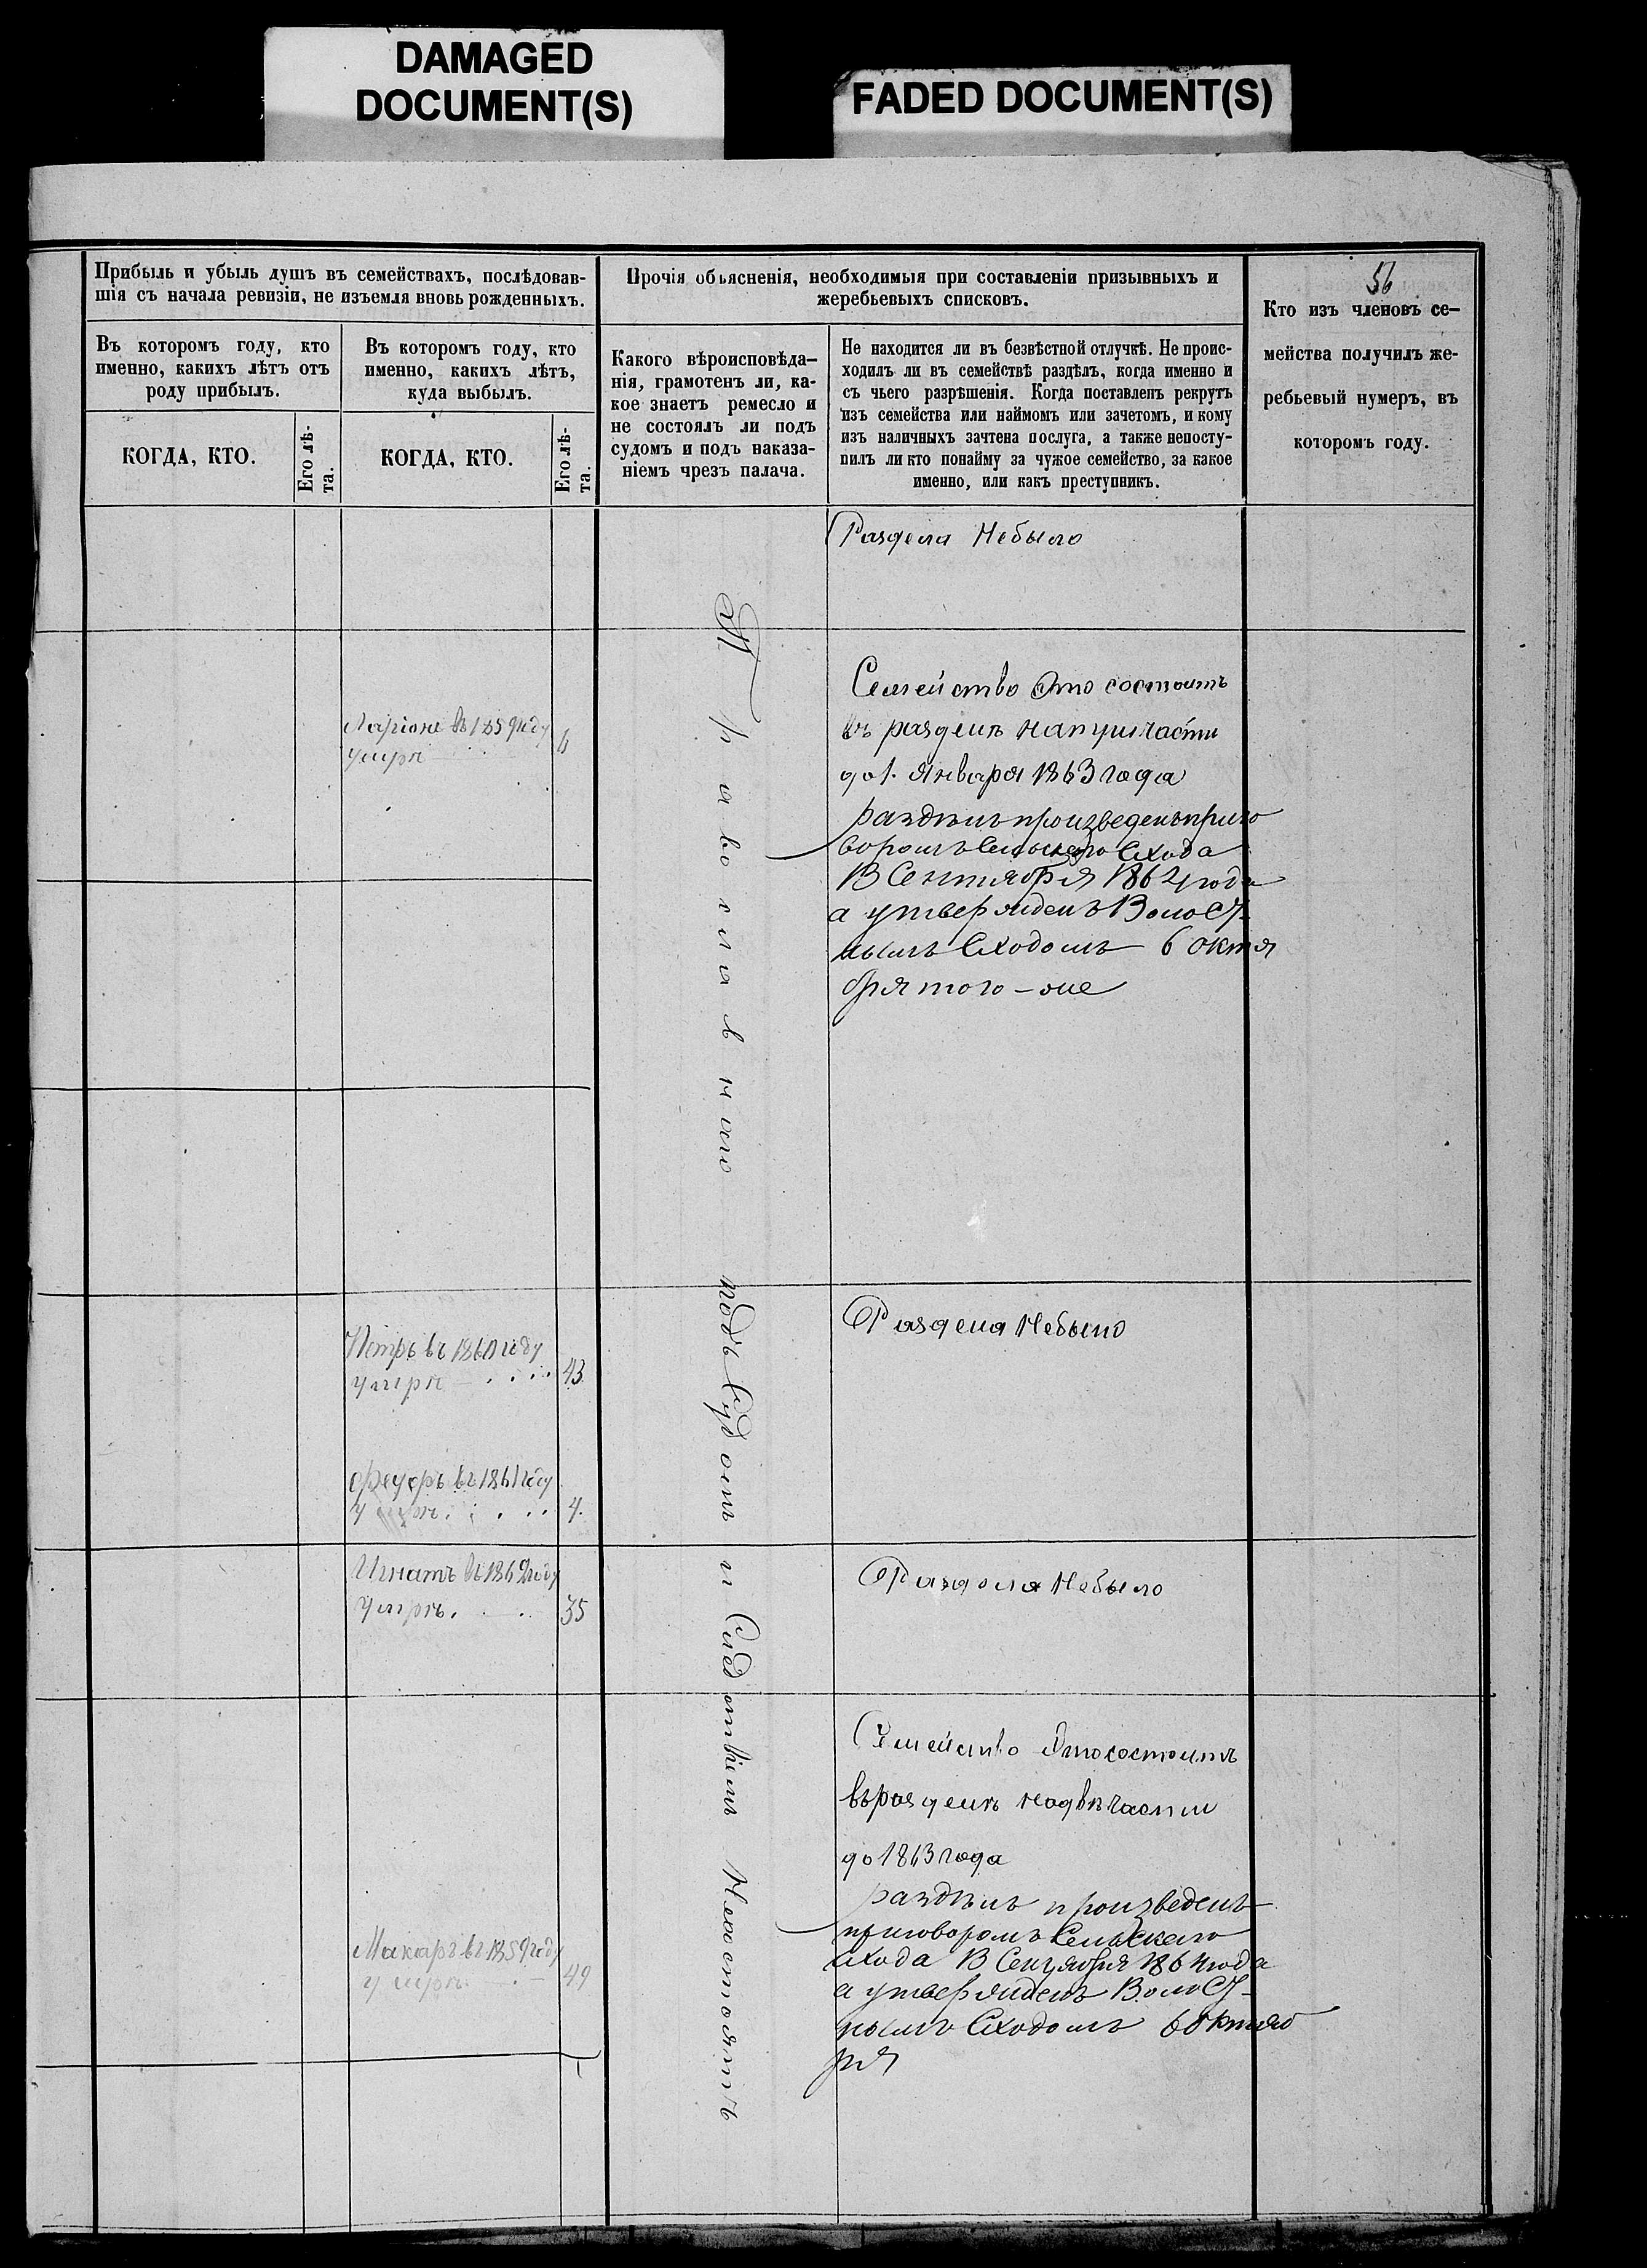 DAMAGED
DOCUMENT(S)
FADED DOCUMENT(S)
56
Прибыль и убыль душъ въ семействахъ, послѣдовав-
шія съ начала ревизіи, не изъемля вновь рожденныхъ.
Прочія объясненія, необходимыя при составленіи призывныхъ и
жеребьевыхъ списковъ.
Кто изъ членовъ се-
мейства получилъ же-
ребьевый нумеръ, въ
которомъ году.
Въ которомъ году, кто
именно, какихъ лѣтъ отъ
роду прибылъ.
Въ которомъ году, кто
именно, какихъ лѣтъ,
куда выбылъ.
Какого вѣроисповѣда-
нія, грамотенъ ли, ка-
кое знаетъ ремесло и
не состоялъ ли подъ
судомъ и подъ наказа-
ніемъ чрезъ палача.
Не находится ли въ безвѣстной отлучкѣ. Не проис-
ходилъ ли въ семействѣ раздѣлъ, когда именно и
съ чьего разрѣшенія. Когда поставленъ рекрутъ
изъ семейства или наймомъ или зачетомъ, и кому
изъ наличныхъ зачтена послуга, а также непосту-
пилъ ли кто понайму за чужое семейство, за какое
именно, или какъ преступникъ.
КОГДА, КТО.
Его лѣ-
та.
КОГДА, КТО.
Его лѣ-
та.
Раздела Небыло
Ларіонъ въ 1859 году
умръ 6
Семейство Это состоитъ
въ разделѣ на три части
до 1. Января 1863 года
раздѣлъ произведенъ приго
воромъ Сельскаго Схода
13 Сентября 1862 года
а утвержденъ Волост-
нымъ Сходомъ 6 октя
бря того-же
Православнаго подъ Судомъ и Следствіемъ Несостоятъ
Петръ въ 1860 году
умръ 43.
Раздела Небыло
Федоръ въ 1861 году
умръ 4.
Игнатъ въ 1869 году
умръ. 35
Раздела Небыло
Семейство Это состоитъ
въ разделѣ на двѣ части
до 1863 года
раздѣлъ произведенъ
приговоромъ Сельскаго
схода 13 Сентября 1862 года
а утвержденъ Волост-
нымъ Сходомъ 6 октяб
ря
Макаръ въ 1859 году
умръ 49